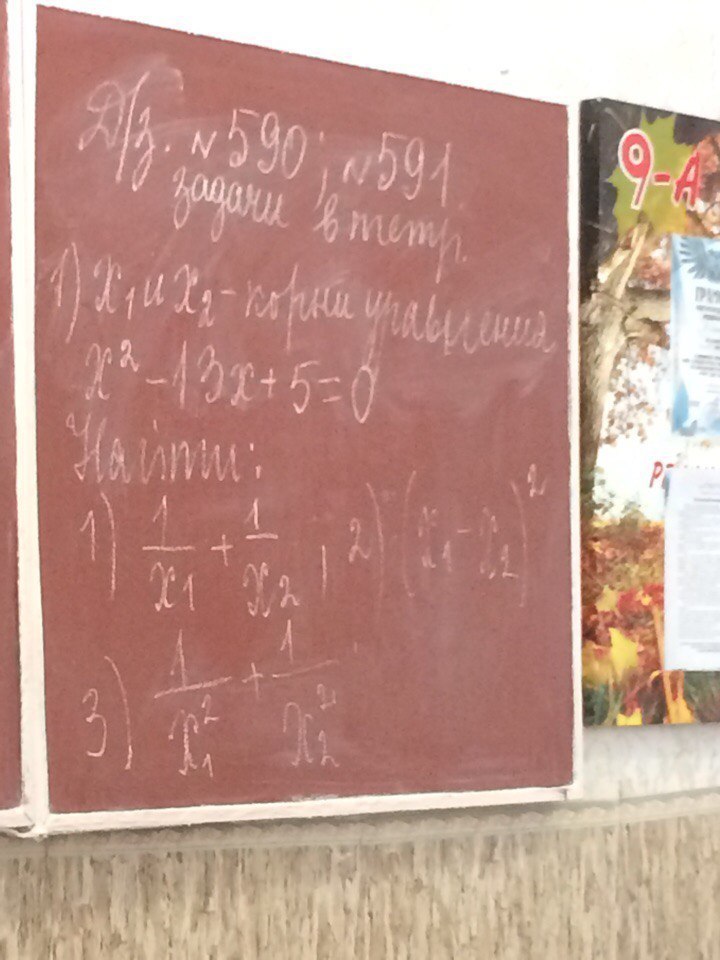 Д/з. №590; №591.
задачи в тетр.
1) x₁ и x₂ - корни уравнения
x² - 13x + 5 = 0
Найти:
1) 1/x₁ + 1/x₂, 2) (x₁ - x₂)²
3) 1/x₁² + 1/x₂²
9-А